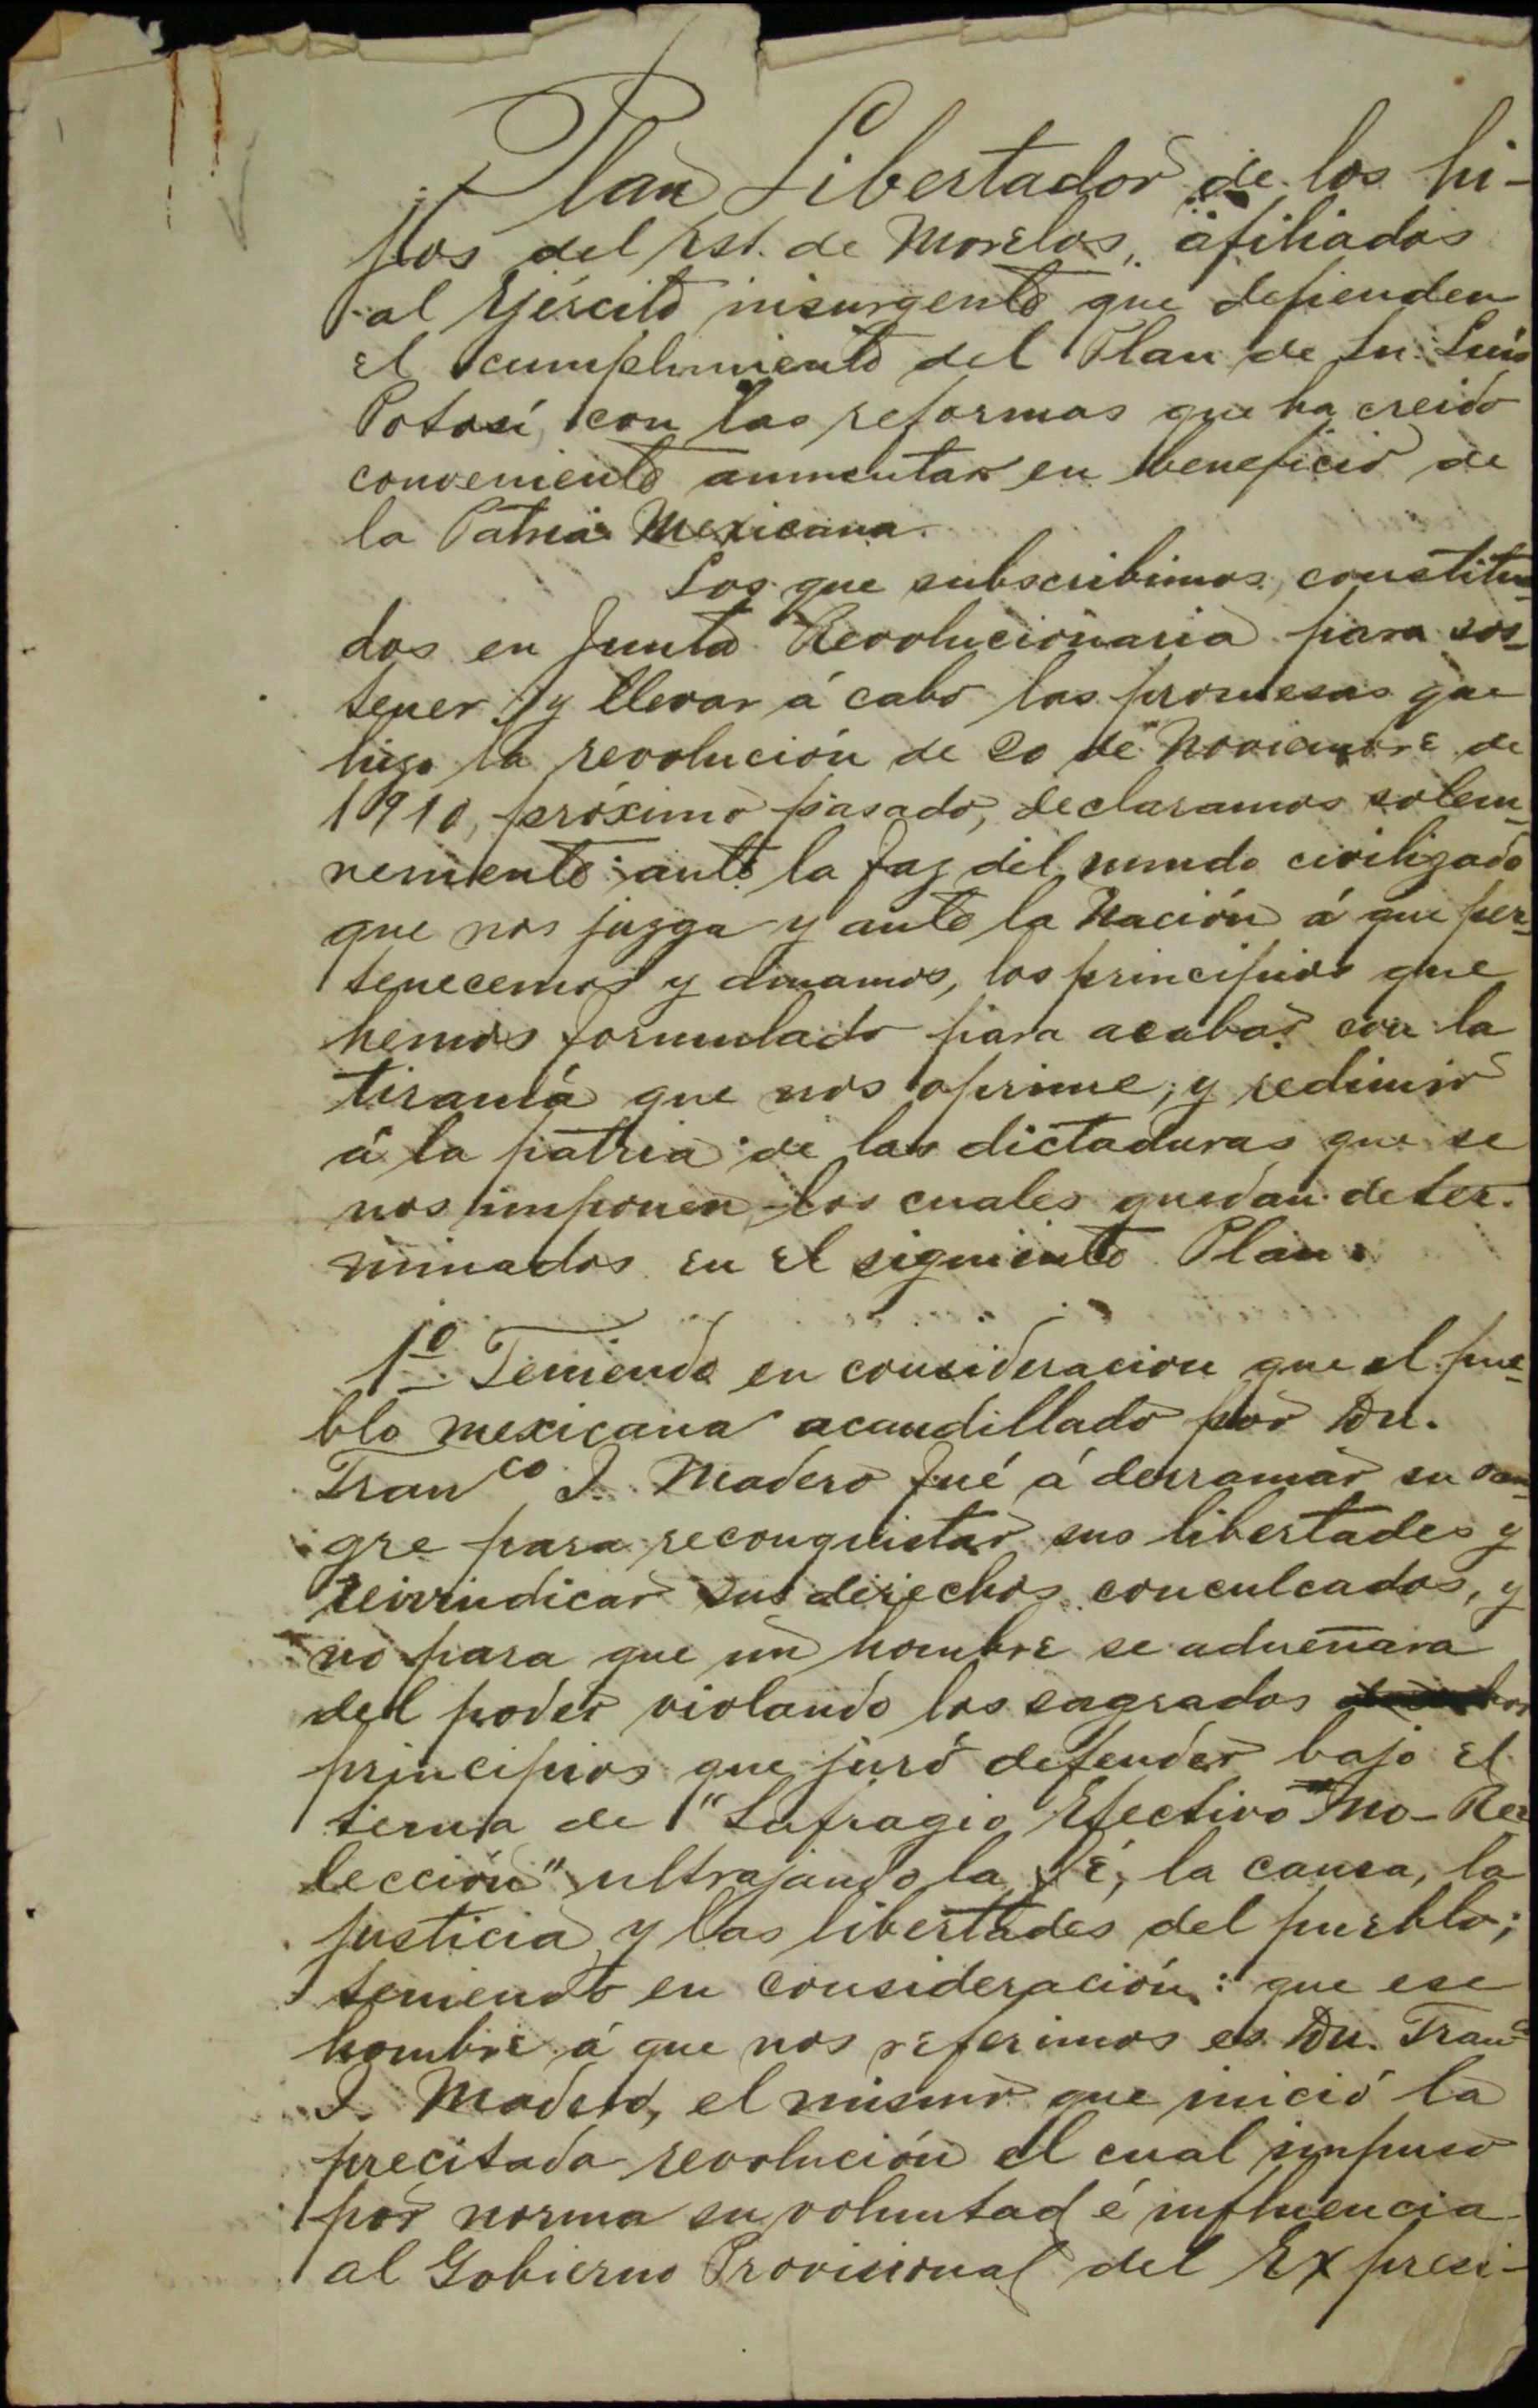 Plan Libertador de los hi-
jos del Est. de Morelos, afiliados
al Ejército insurgente que defienden
el cumplimiento del Plan de Sn. Luis
Potosí con las reformas que ha creido
conveniente aumentar en beneficio de
la Patria Mexicana.
Los que subscribimos, constitui-
dos en Junta Revolucionaria para sos-
tener y llevar á cabo las promesas que
hizo la revolución de 20 de Noviembre de
1910, próximo pasado, declaramos solem-
nemente ante la faz del mundo civilizado
que nos juzga y ante la Nación á que per-
tenecemos y amamos, los principios que
hemos formulado para acabar con la
tiranía que nos oprime, y redimir
á la patria de las dictaduras que se
nos imponen los cuales quedan deter-
minados en el siguiente Plan.
1º Teniendo en consideracion que el pue-
blo mexicana acaudillado por Dn.
Franco I. Madero fué á derramar su san-
gre para reconquistar sus libertades y
reivindicar sus derechos conculcados, y
no para que un hombre se adueñara
del poder violando los sagrados
principios que juró defender bajo el
tema de "Sufragio Efectivo" "No-Ree
lección" ultrajando la fé, la causa, la
justicia y las libertades del pueblo;
teniendo en consideración: que ese
hombre á que nos referimos es Dn. Franco
I. Madero, el mismo que inició la
precitada revolución el cual impuso
por norma su voluntad é influencia
al Gobierno Provisional del Ex presi-